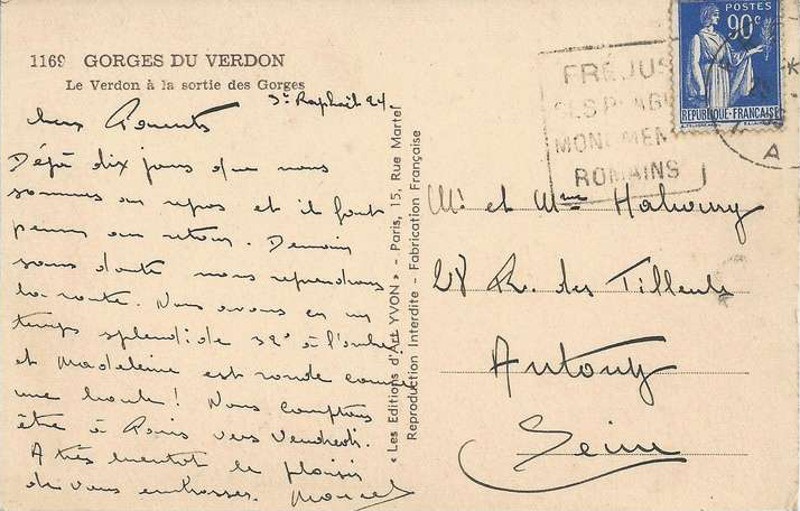 1169 GORGES DU VERDON
Le Verdon à la sortie des Gorges
St Raphaël 24.
Chers Parents
Déjà dix jours que nous
sommes au repos et il faut
penser au retour. Demain
sans doute nous reprendrons
la route. Nous avons eu un
temps splendide 32° à l'ombre
et Madeleine est ronde comme
une boule! Nous comptons
être à Paris vers Vendredi.
A très bientôt le plaisir
de vous embrasser. Marcel
« Les Editions d'Art YVON » - Paris, 15, Rue Martel
Reproduction Interdite - Fabrication Française
POSTES
90c
REPUBLIQUE-FRANÇAISE
FRÉJUS
SES PLAG
MONUMEN
ROMAINS
A
Mr et Mme
28 R. des Tilleuls
Antony
Seine